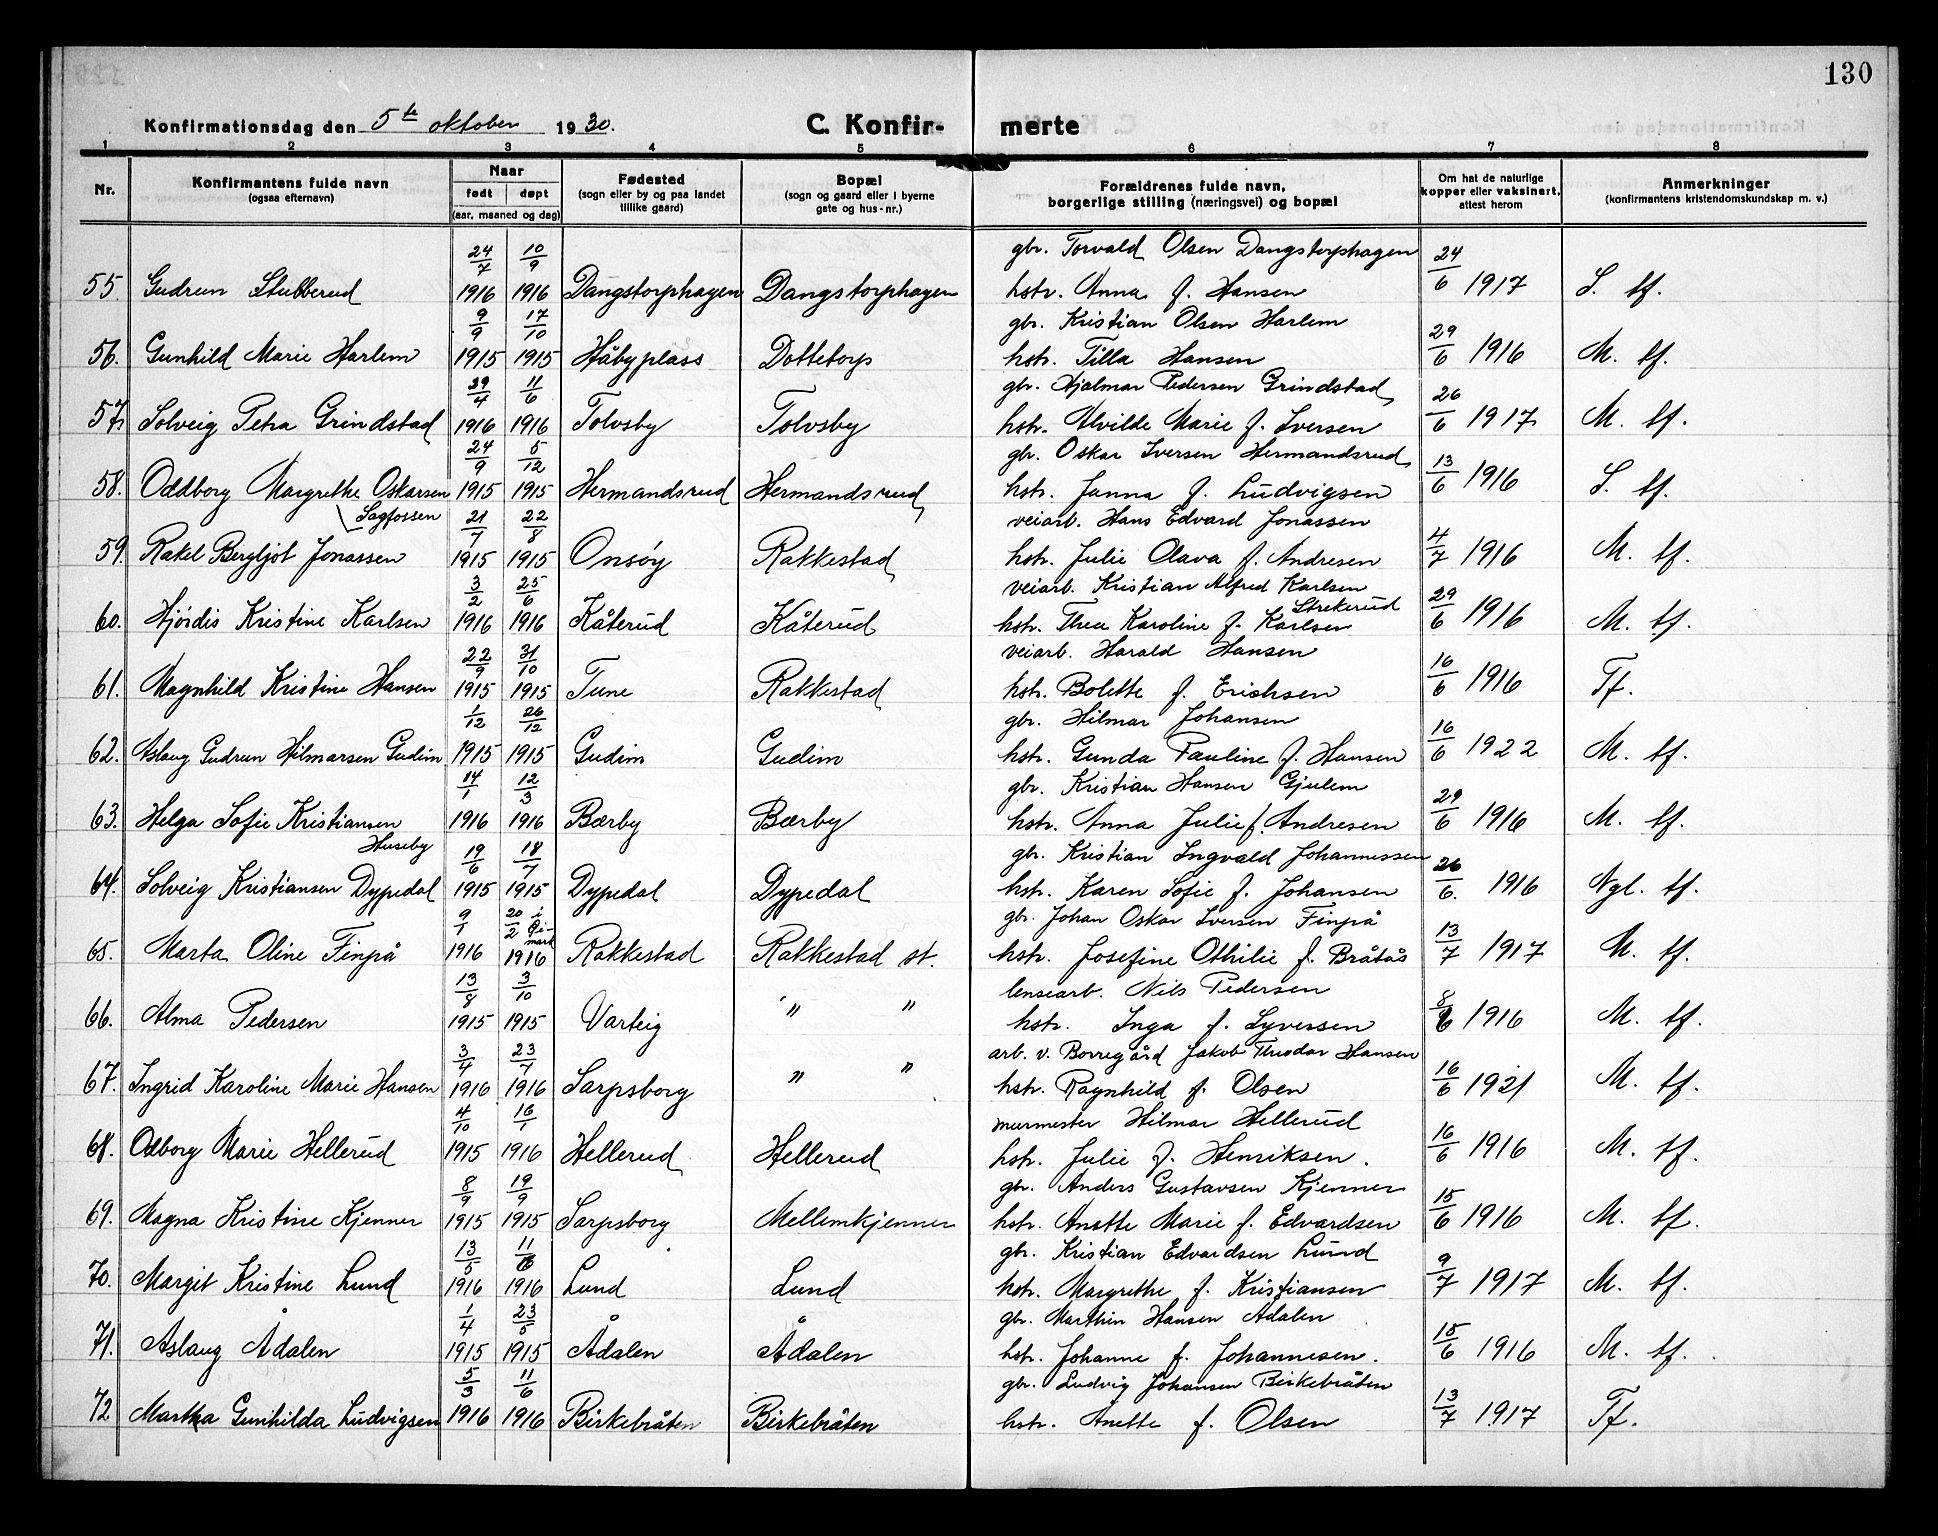 130
Konfirmationsdag den 5te oktober 1930. C. Konfir- merte
1 2 3 4 5 6 7 8
Nr. Konfirmantens fulde navn (ogsaa efternavn) Naar født døpt (aar, maaned og dag) Fødested (sogn eller by og paa landet tillike gaard) Bopæl (sogn og gaard eller i byerne gate og hus-nr.) Forældrenes fulde navn, borgerlige stilling (næringsvei) og bopæl Om hat de naturlige kopper eller vaksinert, attest herom Anmerkninger (konfirmantens kristendomskundskap m. v.)
24/7 10/9 gbr. Torvald Olsen Dangstorphagen
55. Gudrun Stubberud 1916 1916 Dangstorphagen Dangstorphagen hstr. Anna f. Hansen 24/6 1917 S. tf.
9/9 17/10 gbr. Kristian Olsen Harlem
56. Gunhild Marie Harlem 1915 1915 Håbyplass Dottetorp hstr. Tilla Hansen 29/6 1916 M. tf.
29/4 11/6 gbr. Hjalmar Pedersen Grindstad
57. Solveig Petra Grindstad 1916 1916 Tolvsby Tolvsby hstr. Alvilde Marie f. Iversen 26/6 1917 M. tf.
24/9 5/12 gbr. Oskar Iversen Hermandsrud
58. Oddborg Margrethe Oskarsen 1915 1915 Hermandsrud Hermandsrud hstr. Janna f. Ludvigsen 13/6 1916 S. tf.
Sagfossen 21/7 22/8 veiarb. Hans Edvard Jonassen
59. Rakel Bergljot Jonassen 1915 1915 Onsøy Rakkestad hstr. Julie Olava f. Andresen 4/7 1916 M. tf.
3/2 25/6 veiarb. Kristian Alfred Karlsen
Strekerud
60. Hjördis Kristine Karlsen 1916 1916 Kåterud Kåterud hstr. Thea Karoline f. Karlsen 29/6 1916 M. tf.
22/9 31/10 veiarb. Harald Hansen
61. Magnhild Kristine Hansen 1915 1915 Tune Rakkestad hstr. Bolette f. Erichsen 16/6 1916 Tf.
1/12 26/12 gbr. Hilmar Johansen
62. Aslaug Gudrun Hilmarsen Gudim 1915 1915 Gudim Gudim hstr. Gunda Pauline f. Hansen 16/6 1922 M. tf.
14/1 12/3 gbr. Kristian Hansen Gjulem
63. Helga Sofie Kristiansen 1916 1916 Bærby Bærby hstr. Anna Julie f. Andresen 29/6 1916 M. tf.
Huseby 19/6 18/7 gbr. Kristian Ingvald Johannessen
64. Solveig Kristiansen Dypedal 1915 1915 Dypedal Dypedal hstr. Karen Sofie f. Johansen 26/6. 1916 Ngl. tf.
9/1 20/2 i gbr. Johan Oskar Iversen Finpå
65. Marta Oline Finpå 1916 1916 Rakkestad Rakkestad st. hstr. Josefine Othilie f. Bråtås 13/7 1917 M. tf.
13/8 3/10 lensearb. Nils Pedersen
66. Alma Pedersen 1915 1915 Varteig " " hstr. Inga f. Syversen 8/6 1916 M. tf.
3/4 23/7 arb. v. Borregård Jakob Theodor Hansen
67. Ingrid Karoline Marie Hansen 1916 1916 Sarpsborg " " hstr. Ragnhild f. Olsen 16/6 1921 M. tf.
4/10 16/1 murmester Hilmar Hellerud
68. Odborg Marie Hellerud 1915 1916 Hellerud Hellerud hstr. Julie f. Henriksen. 16/6 1916 M. tf.
8/9 19/9 gbr. Anders Gustavsen Kjenner
69. Magna Kristine Kjenner 1915 1915 Sarpsborg Mellemkjenner hstr. Anette Marie f. Edvardsen 15/6 1916 M. tf.
13/5 11/6 gbr. Kristian Edvardsen Lund
70. Margit Kristine Lund 1916 1916 Lund Lund hstr. Margrethe f. Kristiansen 9/7 1917 M. tf.
1/4 23/5 gbr. Marthin Hansen Ådalen
71. Aslaug Ådalen 1915 1915 Ådalen Ådalen hstr. Johanne f. Johannesen. 15/6 1916 M. tf.
5/3 11/6 gbr. Ludvig Johansen Birkebråten
72 Martha Gunhilda Ludvigsen 1916 1916 Birkebråten Birkebråten hstr. Anette f. Olsen 13/7 1917 Tf.